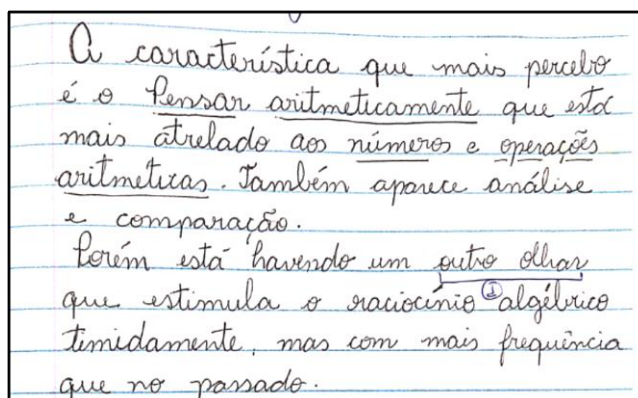 A característica que mais percebo
é o Pensar aritmeticamente que está
mais atrelado aos números e operações
aritmeticas. Também aparece análise
e comparação.
Porém está havendo um outro olhar
que estimula o raciocínio ① algébrico
timidamente, mas com mais frequência
que no passado.